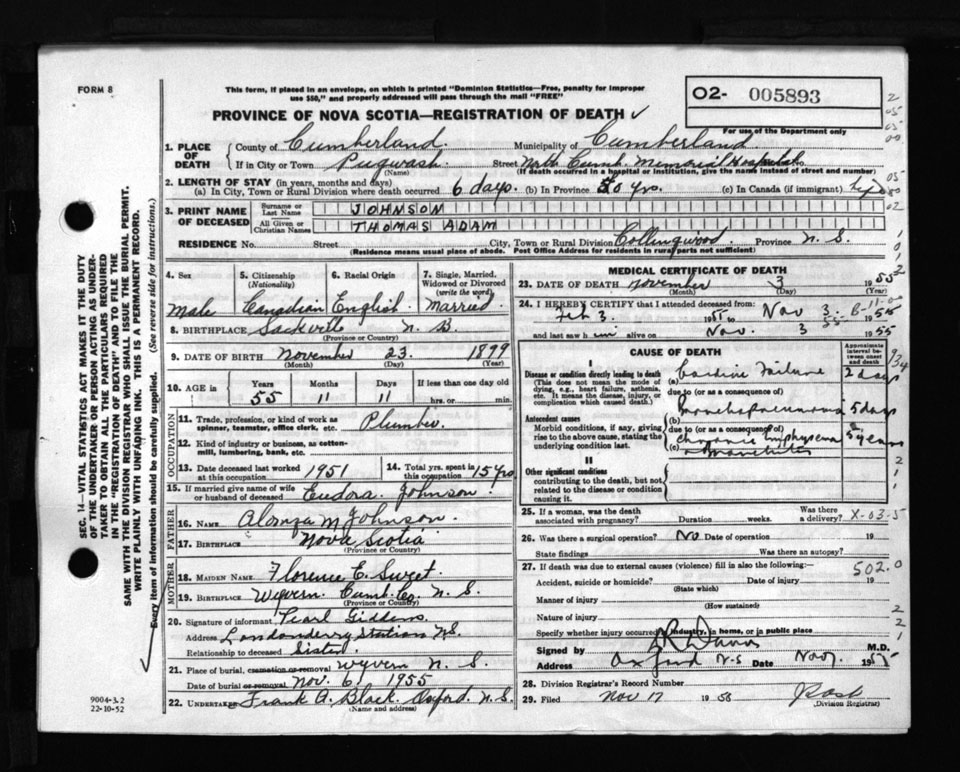 FORM 8
This form, if placed in an envelope, on which is printed "Dominion Statistics—Free, penalty for improper
use $50," and properly addressed will pass through the mail "FREE"
O2- 005893
PROVINCE OF NOVA SCOTIA—REGISTRATION OF DEATH ✓
For use of the Department only
1. PLACE OF DEATH
County of Cumberland. Municipality of Cumberland
If in City or Town Pugwash. Street North Cumb. Memorial Hospital
(Name) (If death occurred in a hospital or institution, give the name instead of street and number)
2. LENGTH OF STAY (in years, months and days)
(a) In City, Town or Rural Division where death occurred 6 days. (b) In Province 50 yrs. (c) In Canada (if immigrant) life
3. PRINT NAME OF DECEASED
Surname or Last Name JOHNSON
All Given or Christian Names THOMAS ADAM
RESIDENCE No. Street City, Town or Rural Division Collingwood. Province N.S.
(Residence means usual place of abode. Post Office Address for residents in rural parts not sufficient)
4. Sex
Male
5. Citizenship (Nationality)
Canadian
6. Racial Origin
English.
7. Single, Married, Widowed or Divorced (write the word)
Married
8. BIRTHPLACE Sackville N. B.
(Province or Country)
9. DATE OF BIRTH November 23. 1899
(Month) (Day) (Year)
10. AGE in
Years Months Days If less than one day old
55 11 11 hrs. or min.
OCCUPATION
11. Trade, profession, or kind of work as spinner, teamster, office clerk, etc. Plumber.
12. Kind of industry or business, as cotton-mill, lumbering, bank, etc.
13. Date deceased last worked at this occupation 1951
14. Total yrs. spent in this occupation 15 yrs
15. If married give name of wife or husband of deceased Eudora Johnson.
FATHER
16. NAME Alonza M Johnson.
17. BIRTHPLACE Nova Scotia
(Province or Country)
MOTHER
18. MAIDEN NAME Florence E. Sweet.
19. BIRTHPLACE Wyvern. Cumb. Co. N. S.
(Province or Country)
20. Signature of informant Pearl Giddens.
Address Londonderry Station N.S.
Relationship to deceased Sister.
21. Place of burial, cremation or removal Wyvern N. S.
Date of burial or removal Nov. 6 1955
22. UNDERTAKER Frank A. Black. Oxford N. S.
(Name and address)
MEDICAL CERTIFICATE OF DEATH
23. DATE OF DEATH November 3 1955
(Month) (Day) (Year)
24. I HEREBY CERTIFY that I attended deceased from
Feb 3 1955 to Nov 3 1955
and last saw him alive on Nov. 3 1955
CAUSE OF DEATH
Approximate interval between onset and death
I
Disease or condition directly leading to death
(This does not mean the mode of dying, e.g., heart failure, asthenia, etc. It means the disease, injury, or complication which caused death.)
(a) Cardiac Failure 2 days
due to (or as a consequence of)
Antecedent causes
Morbid conditions, if any, giving rise to the above cause, stating the underlying condition last.
(b) Bronchopneumonia 5 days
due to (or as a consequence of)
(c) Chronic Emphysema 5 years
+ Bronchitis
II
Other significant conditions
contributing to the death, but not related to the disease or condition causing it.
25. If a woman, was the death associated with pregnancy? Duration weeks. Was there a delivery? X-03-5
26. Was there a surgical operation? No Date of operation 19
State findings Was there an autopsy?
27. If death was due to external causes (violence) fill in also the following: 502.0
Accident, suicide or homicide? Date of injury 19
(State which)
Manner of injury
(How sustained)
Nature of injury
Specify whether injury occurred in industry, in home, or in public place
Signed by M.D.
Address Oxford N-S Date Nov 7. 1955
28. Division Registrar's Record Number
29. Filed Nov 17 1955
(Division Registrar)
SEC. 14—VITAL STATISTICS ACT MAKES IT THE DUTY
OF THE UNDERTAKER OR PERSON ACTING AS UNDER-
TAKER TO OBTAIN ALL THE PARTICULARS REQUIRED
IN THE "REGISTRATION OF DEATH" AND TO FILE THE
SAME WITH THE DIVISION REGISTRAR WHO SHALL ISSUE THE BURIAL PERMIT.
WRITE PLAINLY WITH UNFADING INK. THIS IS A PERMANENT RECORD.
Every item of information should be carefully supplied. (See reverse side for instructions.)
9004-3.2
22-10-52